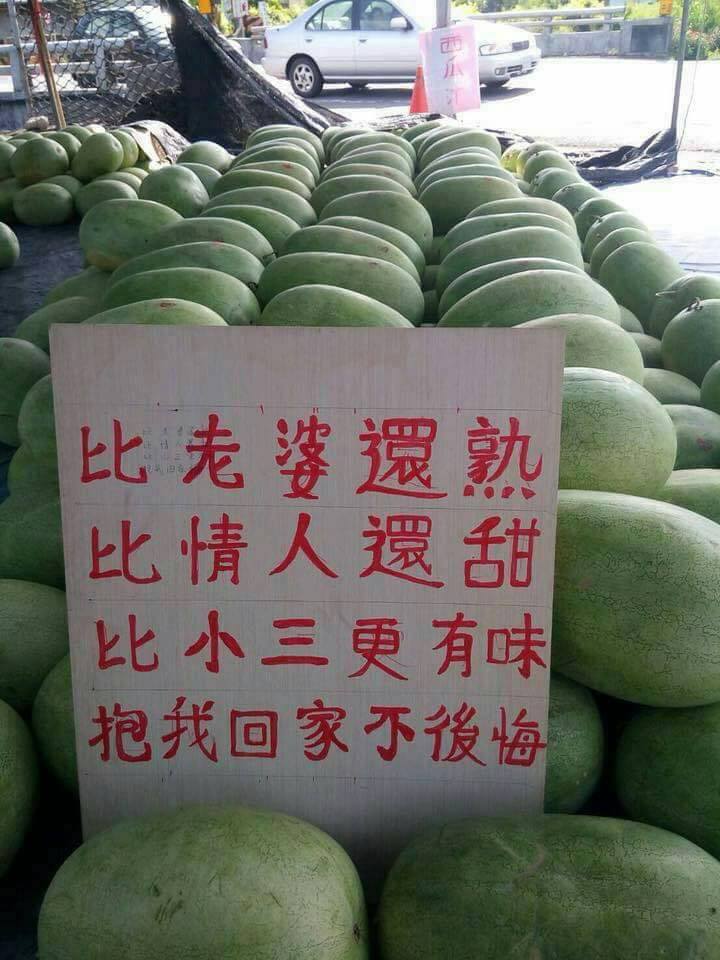 西瓜汁
比老婆還熟
比情人還甜
比小三更有味
抱我回家不後悔